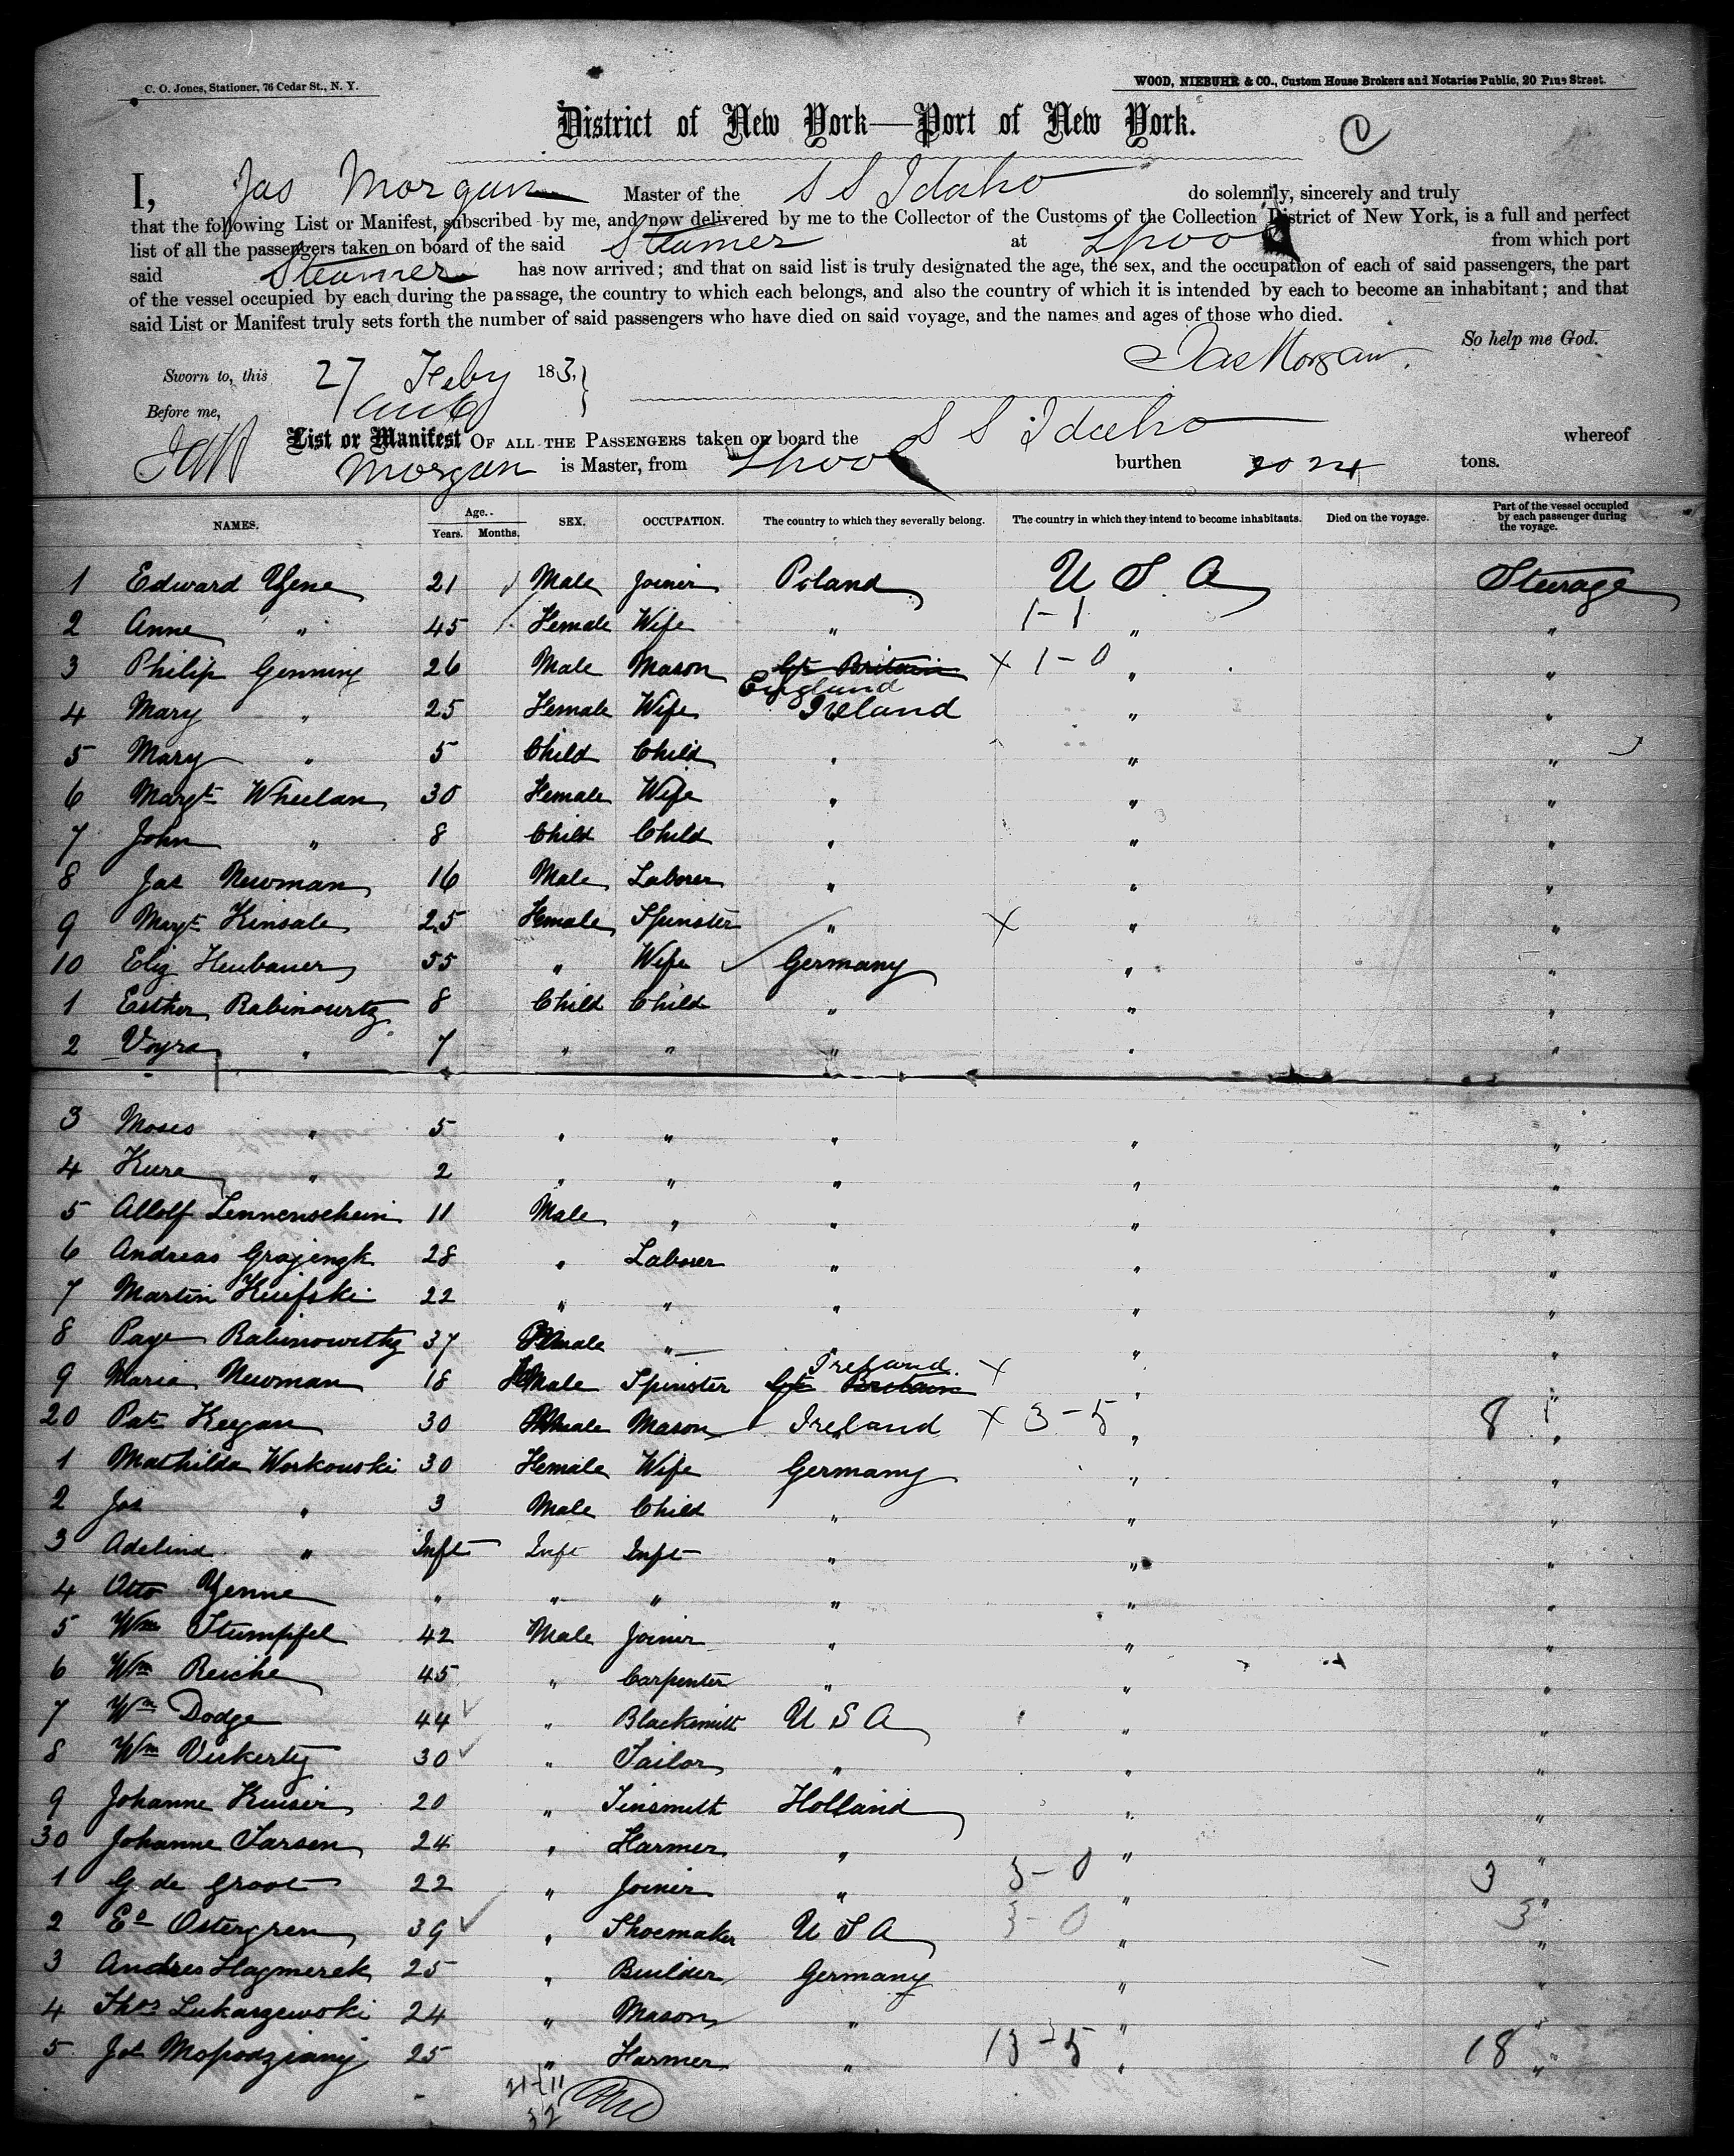 C. O. Jones, Stationer, 76 Cedar St., N. Y.
WOOD, NIEBUHR & CO., Custom House Brokers and Notaries Public, 20 Pine Street.
District of New York—Port of New York.
I, Jas Morgan Master of the S S Idaho do solemnly, sincerely and truly
that the following List or Manifest, subscribed by me, and now delivered by me to the Collector of the Customs of the Collection District of New York, is a full and perfect
list of all the passengers taken on board of the said Steamer at Lpool from which port
said Steamer has now arrived; and that on said list is truly designated the age, the sex, and the occupation of each of said passengers, the part
of the vessel occupied by each during the passage, the country to which each belongs, and also the country of which it is intended by each to become an inhabitant; and that
said List or Manifest truly sets forth the number of said passengers who have died on said voyage, and the names and ages of those who died.
So help me God.
Jas Morgan
Sworn to, this 27 Feby 183,
Before me,
List or Manifest OF ALL THE PASSENGERS taken on board the S S Idaho whereof
Morgan is Master, from Lpool burthen 2024 tons.
NAMES. Age.. Years. Months. SEX. OCCUPATION. The country to which they severally belong. The country in which they intend to become inhabitants. Died on the voyage. Part of the vessel occupied by each passenger during the voyage.
1 Edward Yene 21 Male Joiner Poland U S A Steerage
2 Anne " 45 Female Wife " 1-1 " "
3 Philip Genning 26 Male Mason Gt Britain X 1-0 " "
England
4 Mary " 25 Female Wife Ireland " "
5 Mary " 5 Child Child " " "
6 Margt Wheelan 30 Female Wife " " "
7 John " 8 Child Child " " "
8 Jas Newman 16 Male Laborer " " "
9 Margt Kinsale 25 Female Spinster " X " "
10 Eliz Heubauer 55 " Wife Germany " "
1 Esther Rabinowitz 8 Child Child " " "
2 Voyra " 7 " " " " "
3 Moses " 5 " " " " "
4 Kure " 2 " " " " "
5 Allolf Lennenschein 11 Male " " " "
6 Andreas Grajengk 28 " Laborer " " "
7 Martin Kuifski 22 " " " " "
8 Paye Rabinowitz 37 " " "
Ireland
9 Maria Newman 18 Female Spinster Gt Britain X " "
20 Pat Keegan 30 Male Mason Ireland X 3-5 " 8 "
1 Mathilda Workouski 30 Female Wife Germany " "
2 Jos " 3 Male Child " " "
3 Adelind " Inft Inft Inft " " "
4 Otto Yenne " " " " " "
5 Wm Stumpfel 42 Male Joiner " " "
6 Wm Reiche 45 " Carpenter " " "
7 Wm Dodge 44 " Blacksmith U S A " "
8 Wm Vickerty 30 " Tailor " " "
9 Johanne Kuiser 20 " Tinsmith Holland " "
30 Johanne Larsen 24 " Farmer " " "
1 G de Groot 22 " Joiner " 3-0 " 3 "
2 Ed Ostergren 39 " Shoemaker U S A 3-0 " 3 "
3 Andres Hagmerek 25 " Builder Germany " "
4 Thos Lukarzewski 24 " Mason " " "
5 Jos Mopodziany 25 " Farmer " 13-5 " 18 "
21-11
32